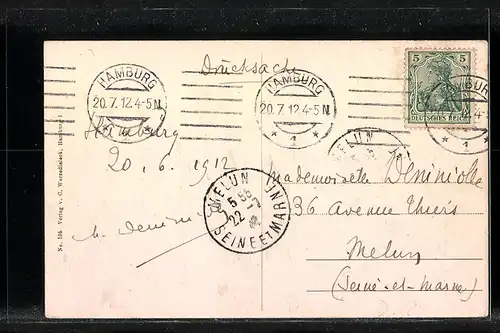 Drucksache
HAMBURG
20.7.12.4-5N.
* 1 *
HAMBURG
20.7.12.4-5N.
* 1 *
5 5
DEUTSCHES REICH
HAMBURG
* 1 *
MELUN
Hamburg
20. 6. 1912
MELUN
5 35
22 -7
SEINE ET MARNE
Mademoiselle
36 Avenue Thiers
Melun
(Seine-et-Marne)
No. 104 Verlag v. C. Hamburg 1